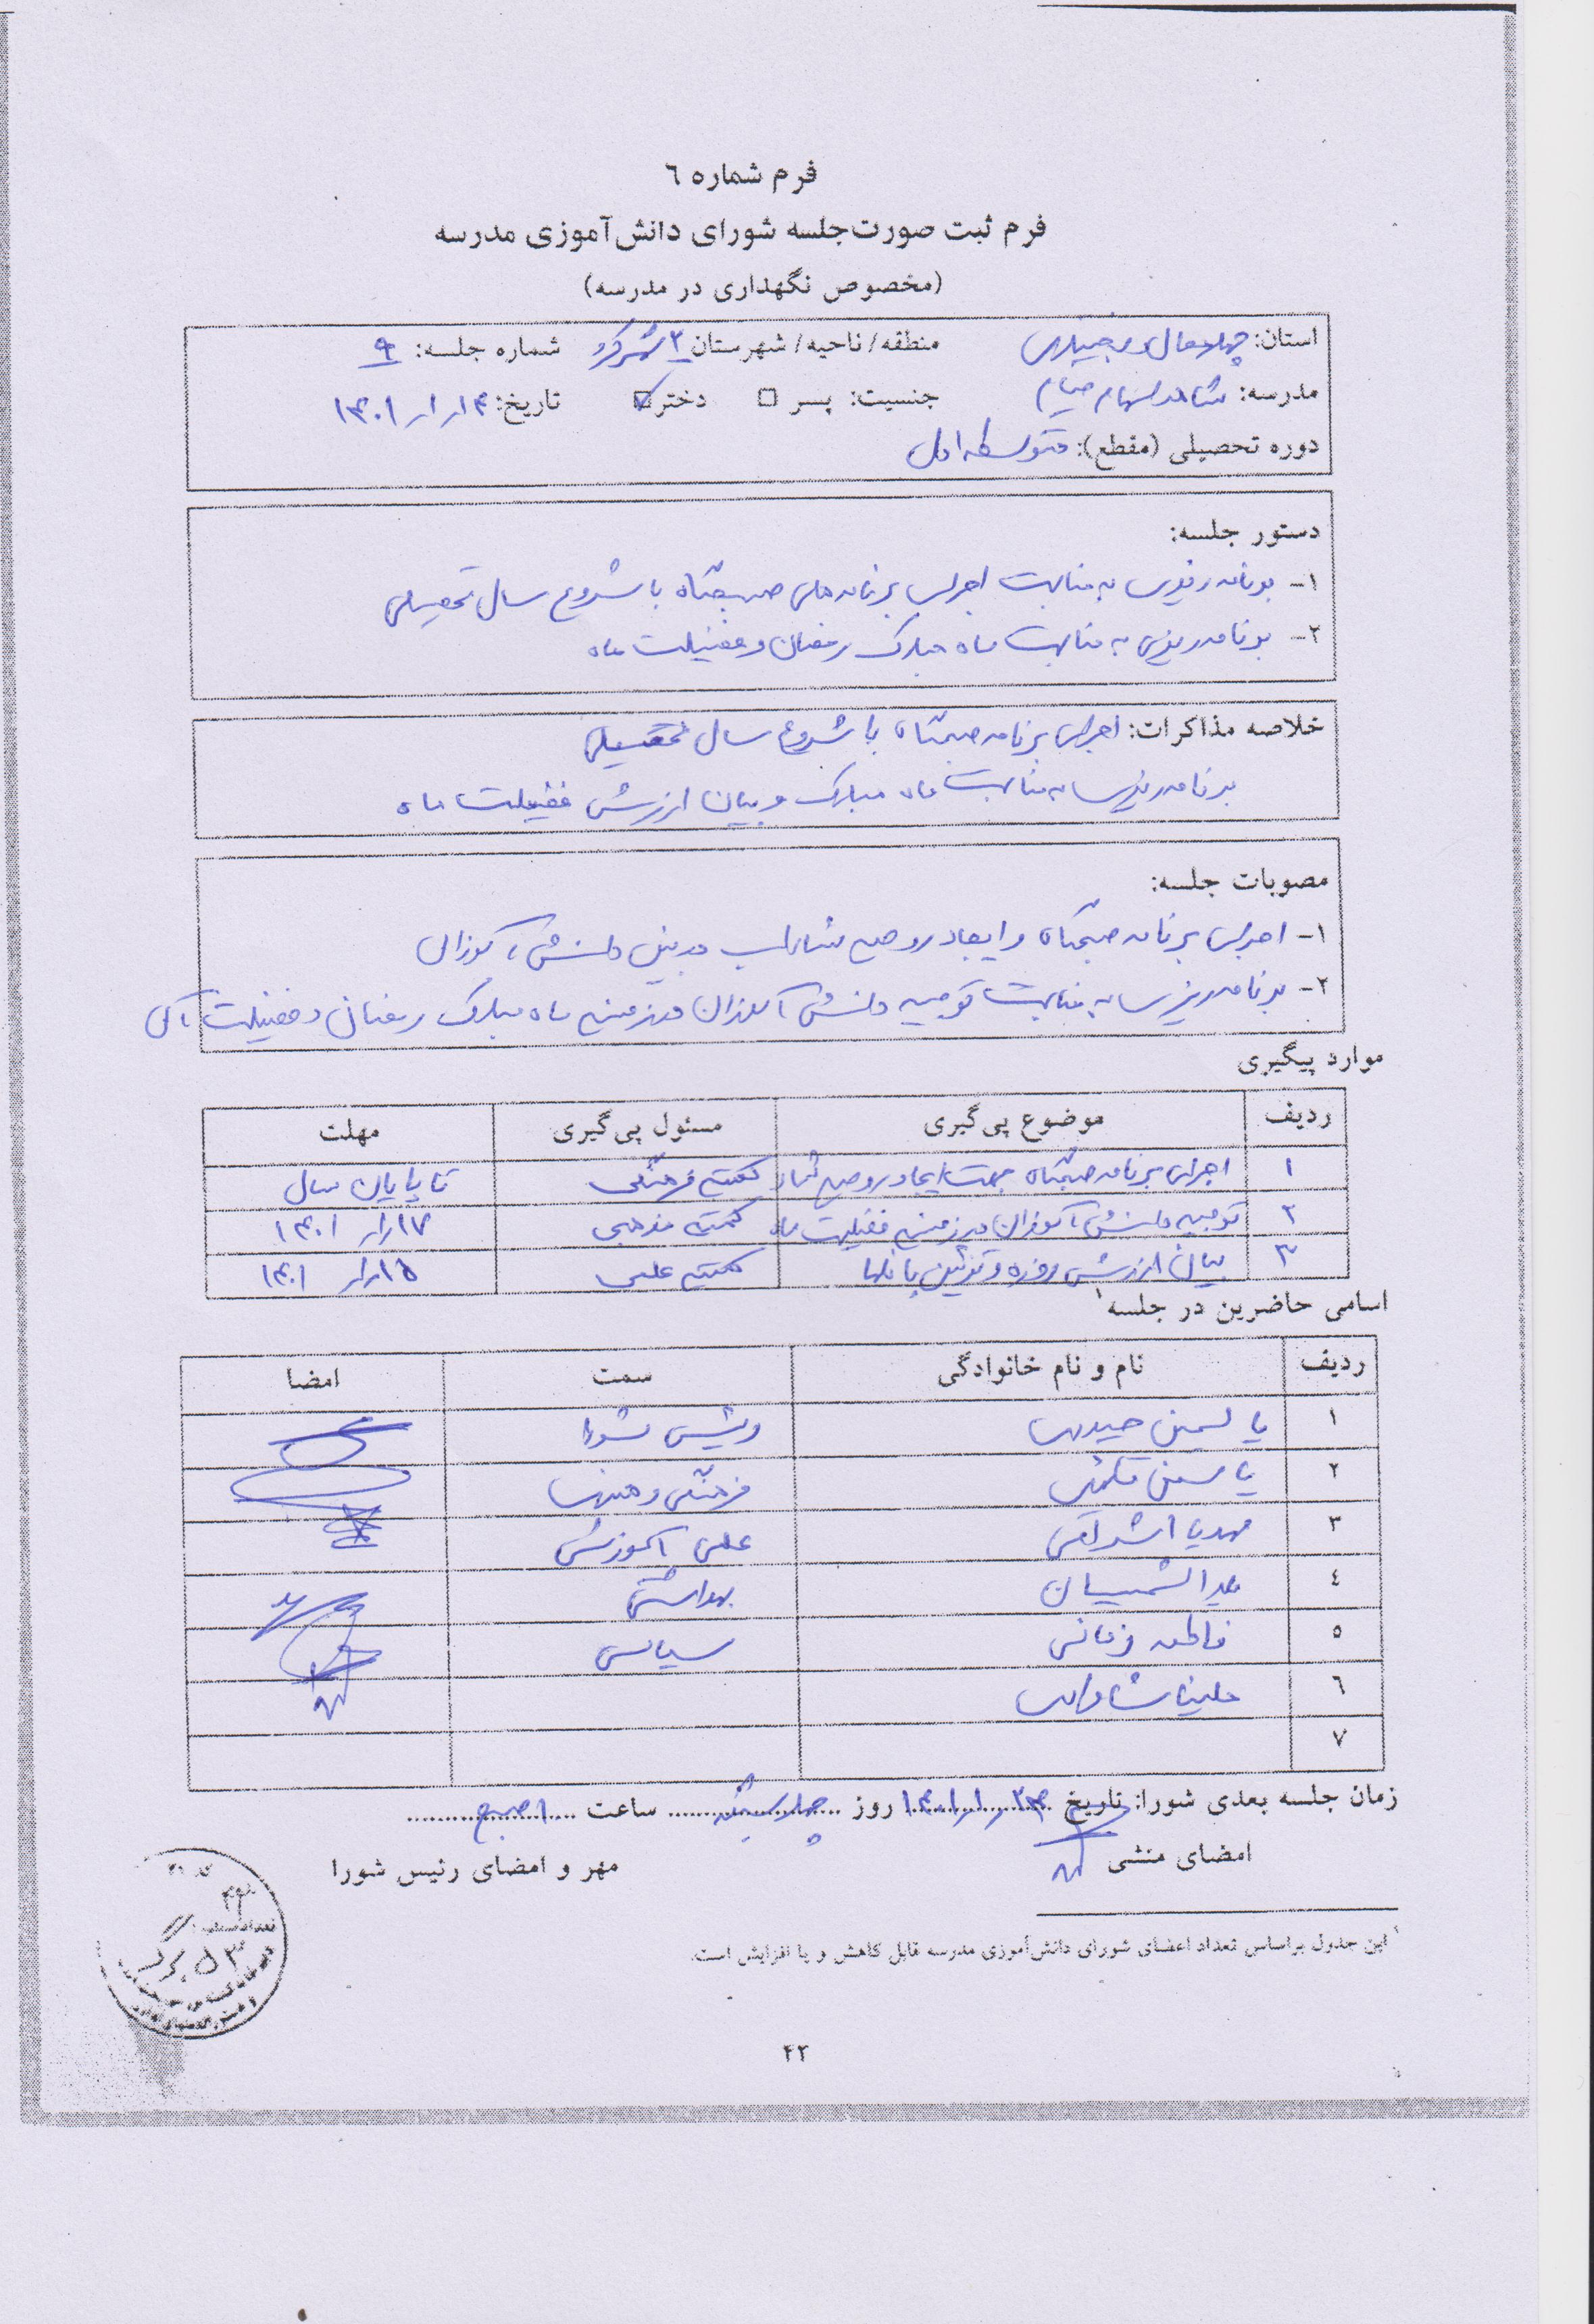 فرم شماره ٦
فرم ثبت صورت‌جلسه شورای دانش‌آموزی مدرسه
(مخصوص نگهداری در مدرسه)
استان: چهارمحال و بختیاری منطقه/ ناحیه/ شهرستان ۲ شهرکرد شماره جلسه: ۹
مدرسه: شاهد جنسیت: پسر □ دختر ☑ تاریخ: ۱۴۰۱/۱/۱۴
دوره تحصیلی (مقطع): متوسطه اول
دستور جلسه:
۱- برنامه ریزی به مناسبت اجرای برنامه های صبحگاه با شروع سال تحصیلی
۲- برنامه ریزی به مناسبت ماه مبارک رمضان و فضیلت ماه
خلاصه مذاکرات: اجرای برنامه صبحگاه با شروع سال تحصیلی
برنامه ریزی به مناسبت ماه مبارک و بیان ارزش فضیلت ماه
مصوبات جلسه:
۱- اجرای برنامه صبحگاه و ایجاد روحیه شاداب در بین دانش آموزان
۲- برنامه ریزی به مناسبت توجیه دانش آموزان در زمینه ماه مبارک رمضان و فضیلت آن
موارد پیگیری
ردیف موضوع پی‌گیری مسئول پی‌گیری مهلت
۱ اجرای برنامه صبحگاه جهت ایجاد روحیه شاد کمیته فرهنگی تا پایان سال
۲ توجیه دانش آموزان در زمینه فضیلت ماه کمیته مذهبی ۱۴۰۱/۱/۱۷
۳ بیان ارزش روزه و تزئین کمیته علمی ۱۴۰۱/۱/۱۵
اسامی حاضرین در جلسه۱
ردیف نام و نام خانوادگی سمت امضا
۱ یاسمین حیدری رئیس شورا
۲ یاسمن فرهنگی و هنری
۳ علمی آموزشی
٤ بهداشتی
٥ فاطمه زمانی سیاسی
٦
۷
زمان جلسه بعدی شورا: تاریخ ۱۴۰۱/۱/۲۴ روز چهارشنبه ساعت ۱۰ صبح
امضای منشی مهر و امضای رئیس شورا
۱ این جدول براساس تعداد اعضای شورای دانش‌آموزی مدرسه قابل کاهش و یا افزایش است.
۴۲